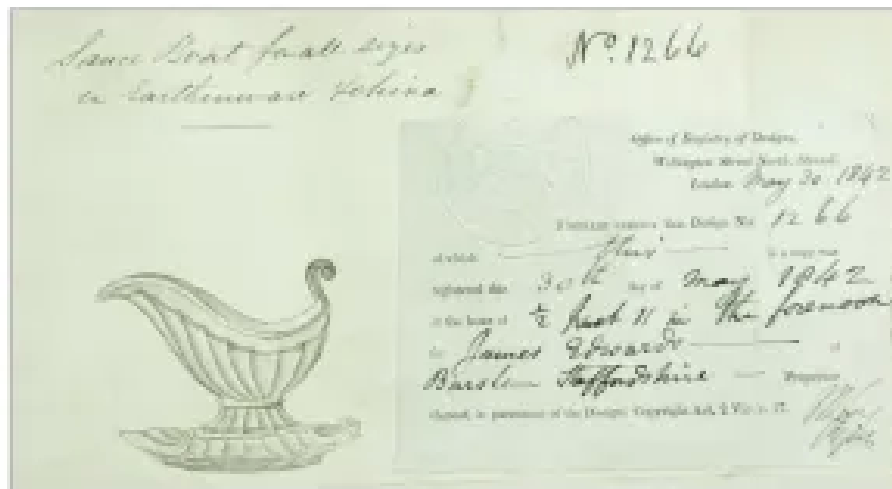 Sauce Boat for all sizes
in Earthenware & china
No. 1266
Office of Registry of Designs,
Wellington Street North, Strand.
London May 30 1842
that Design No. 1266
of which this is a copy was
registered this 30th day of May 1842
at the hour of ½ past 11 in the forenoon
for James Edwards of
Burslem Staffordshire Proprietor
thereof, in pursuance of the Designs Copyright Act, 2 Vic. c. 17.